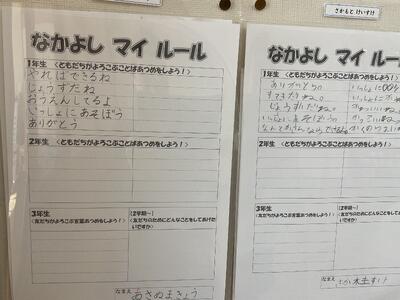 さかもと けいすけ
なかよし マイ ルール
1年生 〈ともだちがよろこぶことばあつめをしよう！〉
やればできるね
じょうずだね
おうえんしてるよ
いっしょにあそぼう
ありがとう
2年生 〈ともだちがよろこぶことばあつめをしよう！〉
3年生
〈友だちがよろこぶ言葉あつめをしよう！〉
【2学期～】
〈友だちのためにどんなことをしてあげたいですか〉
なまえ
あさぬまきょう
なかよし マイ ルール
1年生 〈ともだちがよろこぶことばあつめをしよう！〉
ありがとう
じょうずだね。
いっしょにあそぼう
2年生 〈ともだちがよろこぶことばあつめをしよう！〉
3年生
〈友だちがよろこぶ言葉あつめをしよう！〉
【2学期～】
〈友だちのためにどんなことをして
いですか〉
なまえ